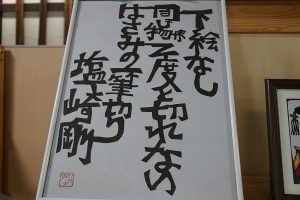 下絵なし
同じ物は二度と切れない
はさみの一筆切り
塩崎剛